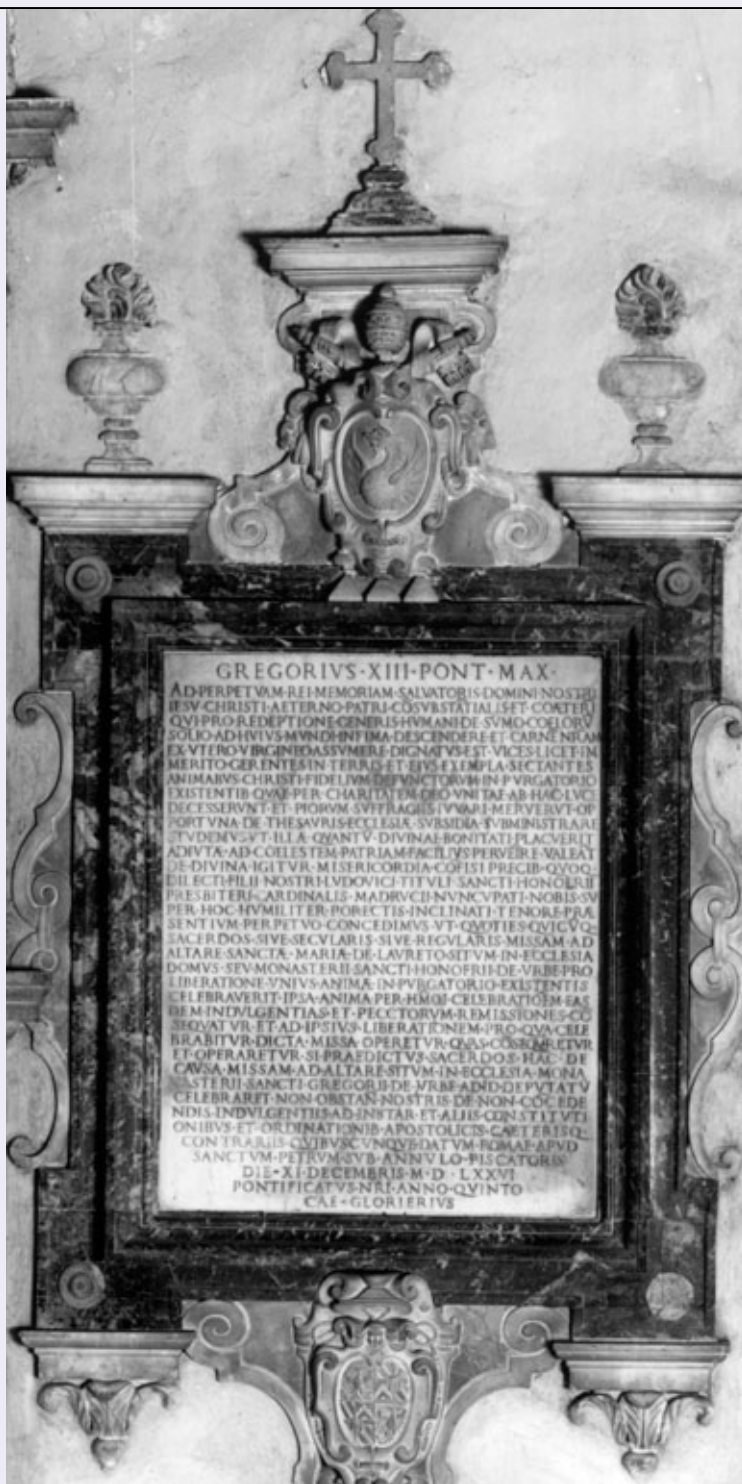 GREGORIVS·XIII·PONT·MAX·
AD·PERPETVAM·REI·MEMORIAM·SALVATORIS·DOMINI·NOSTRI
IESV·CHRISTI·AETERNO·PATRI·COSVBSTATIALIS·ET·COATERI
QVI·PRO·REDEPTIONE·GENERIS·HVMANI·DE·SVMO·COELORV
SOLIO·AD·HVIVS·MVNDI·INFIMA·DESCENDERE·ET·CARNEM
EX·VTERO·VIRGINEO·ASSVMERE·DIGNATVS·EST·VICES·LICET·IM
MERITO·GERENTES·IN·TERRIS·ET·EIVS·EXEMPLA·SECTANTES
ANIMABVS·CHRISTI·FIDELIVM·DEFVNCTORVM·IN·PVRGATORIO
EXISTENTIB·QVAE·PER·CHARITATEM·DEO·VNITAE·AB·HAC·LVCE
DECESSERVNT·ET·PIORVM·SVFFRAGIIS·IVVARI·MERVERVT·OP
PORTVNA·DE·THESAVRIS·ECCLESIÆ·SVBSIDIA·SVBMINISTRARE
STVDEMVS·VT·ILLÆ·QVANTV·DIVINAE·BONITATI·PLACVERIT
ADIVTÆ·AD·COELESTEM·PATRIAM·FACILIVS·PERVEIRE·VALEAT
DE·DIVINA·IGITVR·MISERICORDIA·COFISI·PRECIB·QVOQ
DILECTI·FILII·NOSTRI·LVDOVICI·TITVLI·SANCTI·HONOFRII
PRESBITERI·CARDINALIS·MADRVCII·NVNCVPATI·NOBIS·SV
PER·HOC·HVMILITER·PORECTIS·INCLINATI·TENORE·PRÆ
SENTIVM·PERPETVO·CONCEDIMVS·VT·QVOTIES·QVICVQ
SACERDOS·SIVE·SECVLARIS·SIVE·REGVLARIS·MISSAM·AD
ALTARE·SANCTÆ·MARIÆ·DE·LAVRETO·SITVM·IN·ECCLESIA
DOMVS·SEV·MONASTERII·SANCTI·HONOFRII·DE·VRBE·PRO
LIBERATIONE·VNIVS·ANIMÆ·IN·PVRGATORIO·EXISTENTIS
CELEBRAVERIT·IPSA·ANIMA·PER·HMOI·CELEBRATIOEM·EAS
DEM·INDVLGENTIAS·ET·PECCTORVM·REMISSIONES·CO
SEQVATVR·ET·AD·IPSIVS·LIBERATIONEM·PRO·QVA·CELE
BRABITVR·DICTA·MISSA·OPERETVR·QVAS·COSEQVRETVR
ET·OPERARETVR·SI·PRAEDICTVS·SACERDOS·HAC·DE
CAVSA·MISSAM·AD·ALTARE·SITVM·IN·ECCLESIA·MONA
STERII·SANCTI·GREGORII·DE·VRBE·AD·ID·DEPVTATV
CELEBRARET·NON·OBSTAN·NOSTRIS·DE·NON·COCEDE
NDIS·INDVLGENTIIS·AD·INSTAR·ET·ALIIS·CONSTITVTI
ONIBVS·ET·ORDINATIONIB·APOSTOLICIS·CAETERISQ
CONTRARIIS·QVIBVSCVNQVE·DATVM·ROMAE·APVD
SANCTVM·PETRVM·SVB·ANNVLO·PISCATORIS
DIE·XI·DECEMBRIS·M·D·LXXVI
PONTIFICATVS·NRI·ANNO·QVINTO
CAE·GLORIERIVS